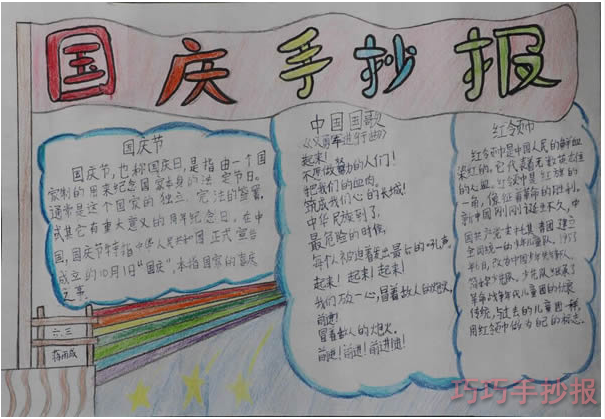 国庆手抄报
国庆节
国庆节,也称国庆日,是指由一个国
家制的用来纪念国家本身的法定节日。
通常是这个国家的独立、宪法的签署,
或其它有重大意义的周年纪念日。在中
国,国庆节特指中华人民共和国正式宣告
成立的10月1日“国庆”,本指国家的喜庆
之事。
六.三
中国国歌
《义勇军进行曲》
起来!
不愿做努力的人们!
把我们的血肉。
筑成我们心的长城!
中华民族到了,
最危险的时候,
每个人被迫着发出最后的吼声。
起来!起来!起来!
我们万一心,冒着敌人的炮火,
前进!
冒着敌人的炮火。
前进!前进!前进进!
红领巾
红领巾是中国人民的鲜血
染红的。它代表着无数革命先烈
的心血。红领巾是红旗的
一角,象征着革命的胜利。
新中国刚刚诞生不久,中
国共产党 建立
全国统一的少年儿童队。1953
年6月,改为中国少年先锋队。
少先队继承了
革命战争年代儿童团的光荣
传统,与过去的儿童团一样,
用红领巾做为自己的标志。
巧巧手抄报